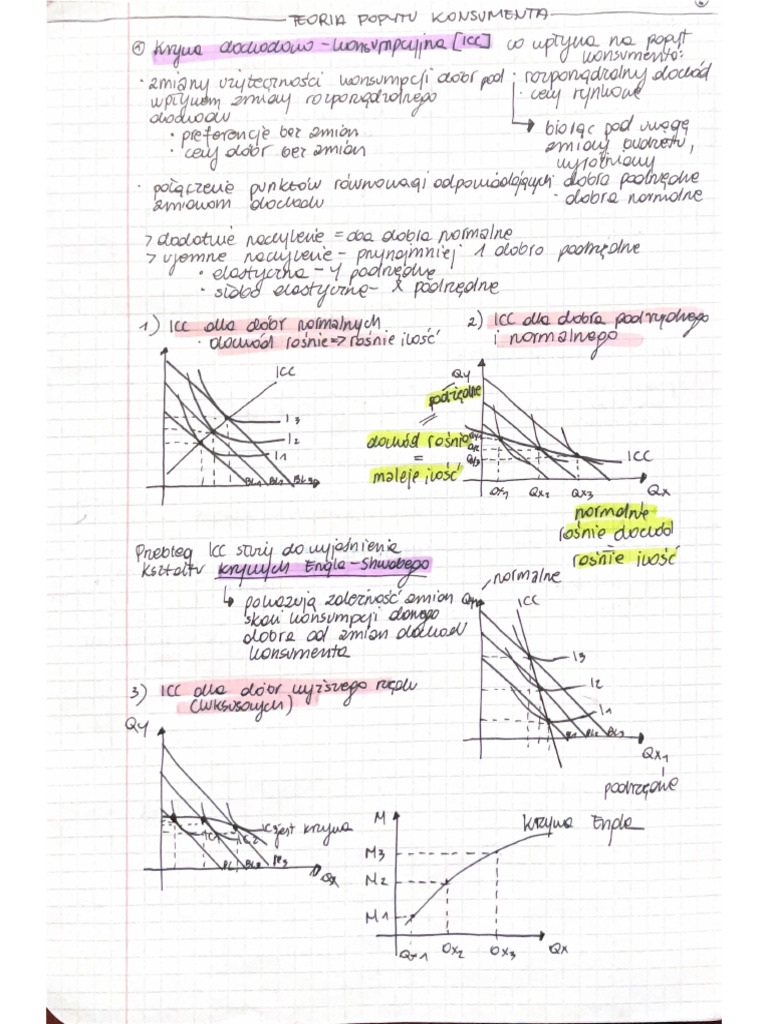 TEORIA POPYTU KONSUMENTA
① Krzywa dochodowo-konsumpcyjna [ICC]
co wpływa na popyt
konsumenta:
· zmiany użyteczności konsumpcji dóbr pod
wpływem zmiany rozporządzalnego
dochodu
· preferencje bez zmian
· ceny dóbr bez zmian
· rozporządzalny dochód
· ceny rynkowe
↳ biorąc pod uwagę
zmiany budżetu,
wyróżniamy
· dobra podrzędne
· dobra normalne
· połączenie punktów równowagi odpowiadających
zmianom dochodu
> dodatnie nachylenie = dwa dobra normalne
> ujemne nachylenie - przynajmniej 1 dobro podrzędne
· elastyczna - Y podrzędne
· słabo elastyczne - X podrzędne
1) ICC dla dóbr normalnych
· dochód rośnie => rośnie ilość
ICC
I3
I2
I1
BL1 BL2 BL3
2) ICC dla dobra podrzędnego
i normalnego
Qy
podrzędne
=
dochód rośnie
=
maleje ilość
Qy1
Qy2
Qy3
ICC
Qx1 Qx2 Qx3 Qx
normalnie
rośnie dochód
=
rośnie ilość
Przebieg ICC służy do wyjaśnienia
kształtu krzywych Engla-Shwabego
↳ pokazują zależność zmian
skali konsumpcji danego
dobra od zmian dochodu
konsumenta
normalne
ICC
I3
I2
I1
BL1 BL2 BL3
Qx1
podrzędne
3) ICC dla dóbr wyższego rzędu
(luksusowych)
Qy
ICC jest krzywa
IC1 IC2
BL1 BL2 BL3
Qx
M
Krzywa Engla
M3
M2
M1
Qx1 Qx2 Qx3 Qx